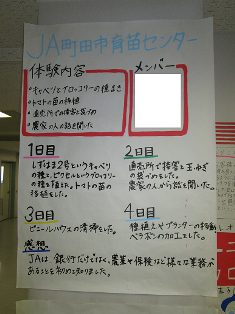 JA町田市育苗センター
体験内容
・キャベツとブロッコリーの種まき
・トマトの苗の移植
・直売所での接客と袋づめ
・農家の人の話を聞いた
メンバー
1日目
しずはま2号というキャベツ
の種と、ピクセルというブロッコリー
の種を植えた。トマトの苗の
移植をした。
2日目
直売所で接客と玉ねぎ
の袋づめをした。
農家の人から話を聞いた。
3日目
ビニールハウスの清掃をした。
4日目
種植えやプランターの移動
ベラボンの加工をした。
感想
JAは銀行だけではなく、農業や保険など様々な業務が
あることを初めて知りました。